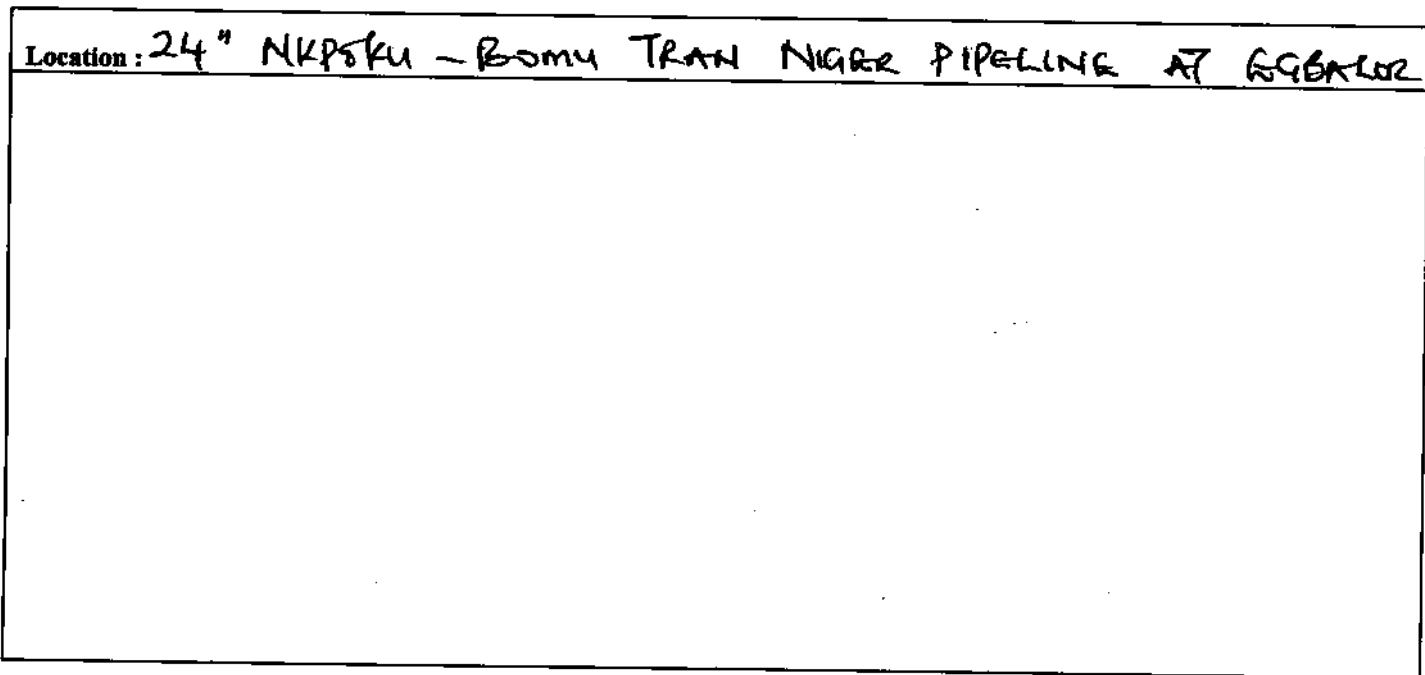 Location : 24" NKPOKU - BOMU TRAN NIGER PIPELINE AT EGBALOR